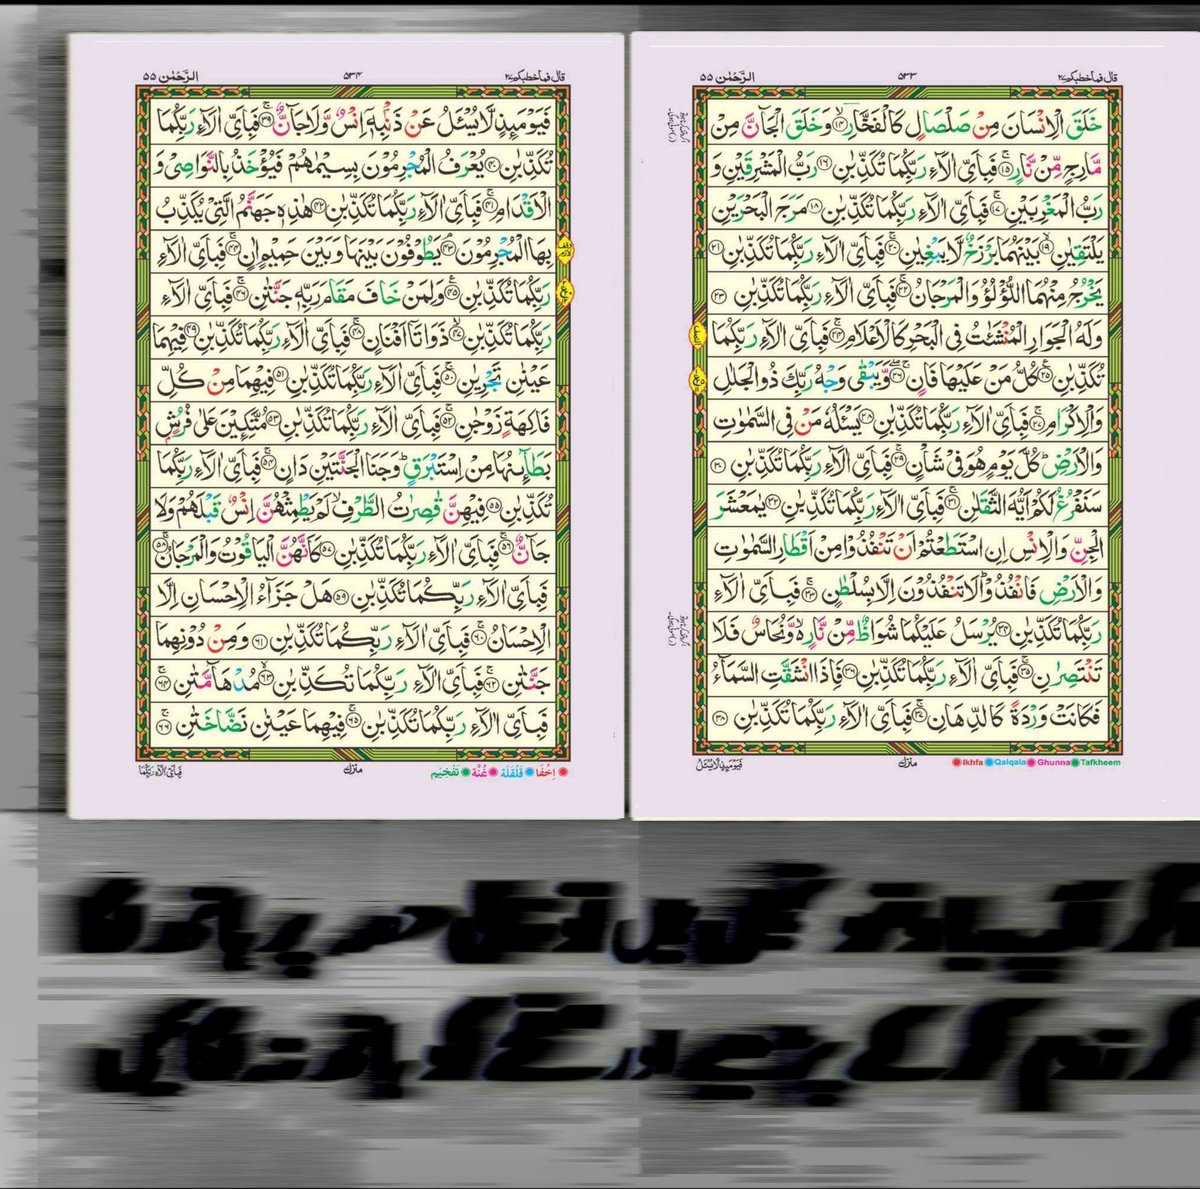 قال فما خطبکم ٢٧ ٥٣٣ الرَّحْمٰن ٥٥
خَلَقَ الْاِنْسَانَ مِنْ صَلْصَالٍ كَالْفَخَّارِ ۙ﴿١٤﴾ وَخَلَقَ الْجَآنَّ مِنْ
مَّارِجٍ مِّنْ نَّارٍ ۚ﴿١٥﴾ فَبِاَىِّ اٰلَآءِ رَبِّكُمَا تُكَذِّبٰنِ ﴿١٦﴾ رَبُّ الْمَشْرِقَيْنِ وَ
رَبُّ الْمَغْرِبَيْنِ ۚ﴿١٧﴾ فَبِاَىِّ اٰلَآءِ رَبِّكُمَا تُكَذِّبٰنِ ﴿١٨﴾ مَرَجَ الْبَحْرَيْنِ
يَلْتَقِيٰنِ ۙ﴿١٩﴾ بَيْنَهُمَا بَرْزَخٌ لَّا يَبْغِيٰنِ ۚ﴿٢٠﴾ فَبِاَىِّ اٰلَآءِ رَبِّكُمَا تُكَذِّبٰنِ ﴿٢١﴾
يَخْرُجُ مِنْهُمَا اللُّؤْلُؤُ وَالْمَرْجَانُ ۚ﴿٢٢﴾ فَبِاَىِّ اٰلَآءِ رَبِّكُمَا تُكَذِّبٰنِ ﴿٢٣﴾
وَلَهُ الْجَوَارِ الْمُنْشَئٰتُ فِى الْبَحْرِ كَالْاَعْلَامِ ۚ﴿٢٤﴾ فَبِاَىِّ اٰلَآءِ رَبِّكُمَا
تُكَذِّبٰنِ ﴿٢٥﴾ كُلُّ مَنْ عَلَيْهَا فَانٍ ۚۖ﴿٢٦﴾ وَّيَبْقٰى وَجْهُ رَبِّكَ ذُو الْجَلٰلِ
وَالْاِكْرَامِ ۚ﴿٢٧﴾ فَبِاَىِّ اٰلَآءِ رَبِّكُمَا تُكَذِّبٰنِ ﴿٢٨﴾ يَسْئَلُهٗ مَنْ فِى السَّمٰوٰتِ
وَالْاَرْضِ ؕ كُلَّ يَوْمٍ هُوَ فِىْ شَاْنٍ ۚ﴿٢٩﴾ فَبِاَىِّ اٰلَآءِ رَبِّكُمَا تُكَذِّبٰنِ ﴿٣٠﴾
سَنَفْرُغُ لَكُمْ اَيُّهَ الثَّقَلٰنِ ۚ﴿٣١﴾ فَبِاَىِّ اٰلَآءِ رَبِّكُمَا تُكَذِّبٰنِ ﴿٣٢﴾ يٰمَعْشَرَ
الْجِنِّ وَالْاِنْسِ اِنِ اسْتَطَعْتُمْ اَنْ تَنْفُذُوْا مِنْ اَقْطَارِ السَّمٰوٰتِ
وَالْاَرْضِ فَانْفُذُوْا ؕ لَا تَنْفُذُوْنَ اِلَّا بِسُلْطٰنٍ ۚ﴿٣٣﴾ فَبِاَىِّ اٰلَآءِ
رَبِّكُمَا تُكَذِّبٰنِ ﴿٣٤﴾ يُرْسَلُ عَلَيْكُمَا شُوَاظٌ مِّنْ نَّارٍ ۙ وَّنُحَاسٌ فَلَا
تَنْتَصِرٰنِ ۚ﴿٣٥﴾ فَبِاَىِّ اٰلَآءِ رَبِّكُمَا تُكَذِّبٰنِ ﴿٣٦﴾ فَاِذَا انْشَقَّتِ السَّمَآءُ
فَكَانَتْ وَرْدَةً كَالدِّهَانِ ۚ﴿٣٧﴾ فَبِاَىِّ اٰلَآءِ رَبِّكُمَا تُكَذِّبٰنِ ﴿٣٨﴾
Ikhfa Qalqala Ghunna Tafkheem
منزل
فَيَوْمَئِذٍ لَّا يُسْئَلُ
قال فما خطبکم ٢٧ ٥٣٤ الرَّحْمٰن ٥٥
فَيَوْمَئِذٍ لَّا يُسْئَلُ عَنْ ذَنْۢبِهٖۤ اِنْسٌ وَّلَا جَآنٌّ ۚ﴿٣٩﴾ فَبِاَىِّ اٰلَآءِ رَبِّكُمَا
تُكَذِّبٰنِ ﴿٤٠﴾ يُعْرَفُ الْمُجْرِمُوْنَ بِسِيْمٰهُمْ فَيُؤْخَذُ بِالنَّوَاصِىْ وَ
الْاَقْدَامِ ۚ﴿٤١﴾ فَبِاَىِّ اٰلَآءِ رَبِّكُمَا تُكَذِّبٰنِ ﴿٤٢﴾ هٰذِهٖ جَهَنَّمُ الَّتِىْ يُكَذِّبُ
بِهَا الْمُجْرِمُوْنَ ۘ﴿٤٣﴾ يَطُوْفُوْنَ بَيْنَهَا وَبَيْنَ حَمِيْمٍ اٰنٍ ۚ﴿٤٤﴾ فَبِاَىِّ اٰلَآءِ
رَبِّكُمَا تُكَذِّبٰنِ ﴿٤٥﴾ وَلِمَنْ خَافَ مَقَامَ رَبِّهٖ جَنَّتٰنِ ۚ﴿٤٦﴾ فَبِاَىِّ اٰلَآءِ
رَبِّكُمَا تُكَذِّبٰنِ ۙ﴿٤٧﴾ ذَوَاتَاۤ اَفْنَانٍ ۚ﴿٤٨﴾ فَبِاَىِّ اٰلَآءِ رَبِّكُمَا تُكَذِّبٰنِ ﴿٤٩﴾ فِيْهِمَا
عَيْنٰنِ تَجْرِيٰنِ ۚ﴿٥٠﴾ فَبِاَىِّ اٰلَآءِ رَبِّكُمَا تُكَذِّبٰنِ ﴿٥١﴾ فِيْهِمَا مِنْ كُلِّ
فَاكِهَةٍ زَوْجٰنِ ۚ﴿٥٢﴾ فَبِاَىِّ اٰلَآءِ رَبِّكُمَا تُكَذِّبٰنِ ﴿٥٣﴾ مُتَّكِئِيْنَ عَلٰى فُرُشٍۢ
بَطَآئِنُهَا مِنْ اِسْتَبْرَقٍ ؕ وَجَنَا الْجَنَّتَيْنِ دَانٍ ۚ﴿٥٤﴾ فَبِاَىِّ اٰلَآءِ رَبِّكُمَا
تُكَذِّبٰنِ ﴿٥٥﴾ فِيْهِنَّ قٰصِرٰتُ الطَّرْفِ ۙ لَمْ يَطْمِثْهُنَّ اِنْسٌ قَبْلَهُمْ وَلَا
جَآنٌّ ۚ﴿٥٦﴾ فَبِاَىِّ اٰلَآءِ رَبِّكُمَا تُكَذِّبٰنِ ۚ﴿٥٧﴾ كَاَنَّهُنَّ الْيَاقُوْتُ وَالْمَرْجَانُ ۚ﴿٥٨﴾
فَبِاَىِّ اٰلَآءِ رَبِّكُمَا تُكَذِّبٰنِ ﴿٥٩﴾ هَلْ جَزَآءُ الْاِحْسَانِ اِلَّا
الْاِحْسَانُ ۚ﴿٦٠﴾ فَبِاَىِّ اٰلَآءِ رَبِّكُمَا تُكَذِّبٰنِ ﴿٦١﴾ وَمِنْ دُوْنِهِمَا
جَنَّتٰنِ ۚ﴿٦٢﴾ فَبِاَىِّ اٰلَآءِ رَبِّكُمَا تُكَذِّبٰنِ ۙ﴿٦٣﴾ مُدْهَآمَّتٰنِ ۚ﴿٦٤﴾
فَبِاَىِّ اٰلَآءِ رَبِّكُمَا تُكَذِّبٰنِ ۚ﴿٦٥﴾ فِيْهِمَا عَيْنٰنِ نَضَّاخَتٰنِ ۚ﴿٦٦﴾
اِخْفَا قَلْقَلَة غُنَّة تَفْخِيْم
منزل
فَبِاَىِّ اٰلَآءِ رَبِّكُمَا